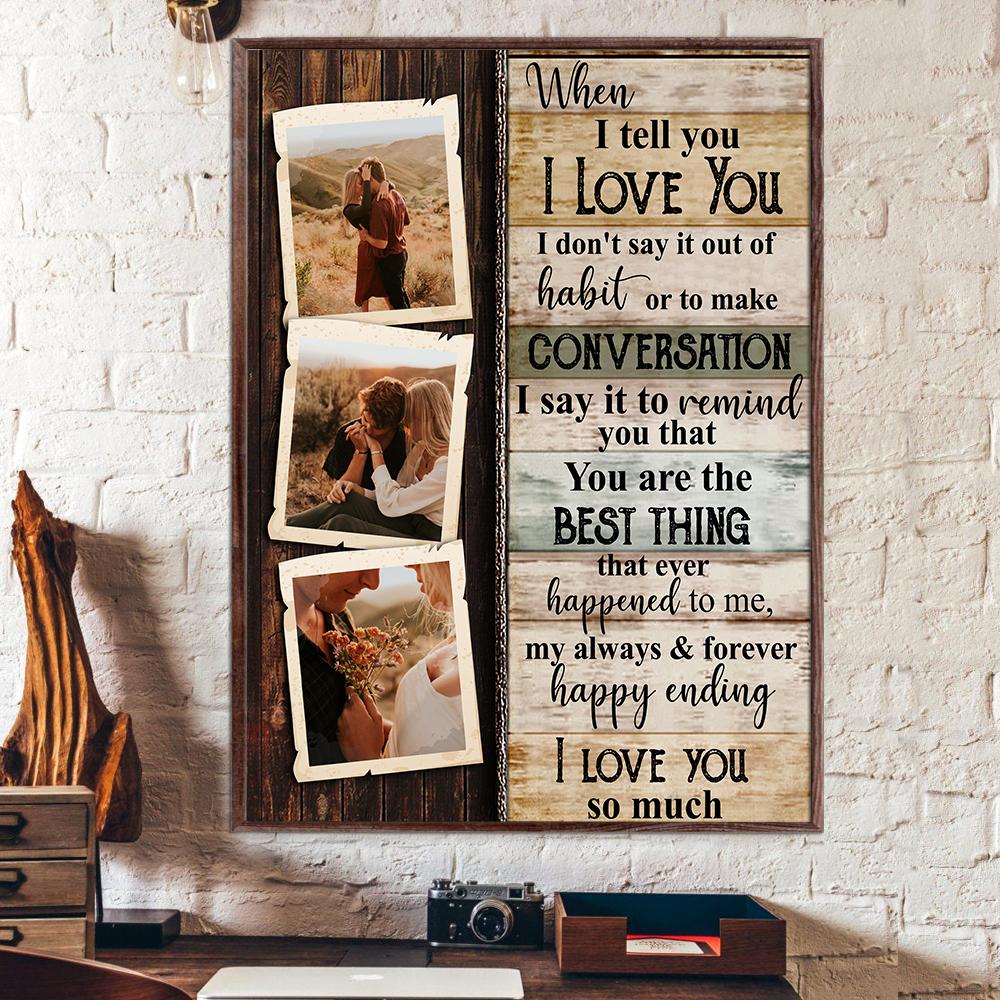 When
I tell you
I LOVE YOU
I don't say it out of
habit or to make
CONVERSATION
I say it to remind
you that
You are the
BEST THING
that ever
happened to me,
my always & forever
happy ending
I LOVE YOU
so much